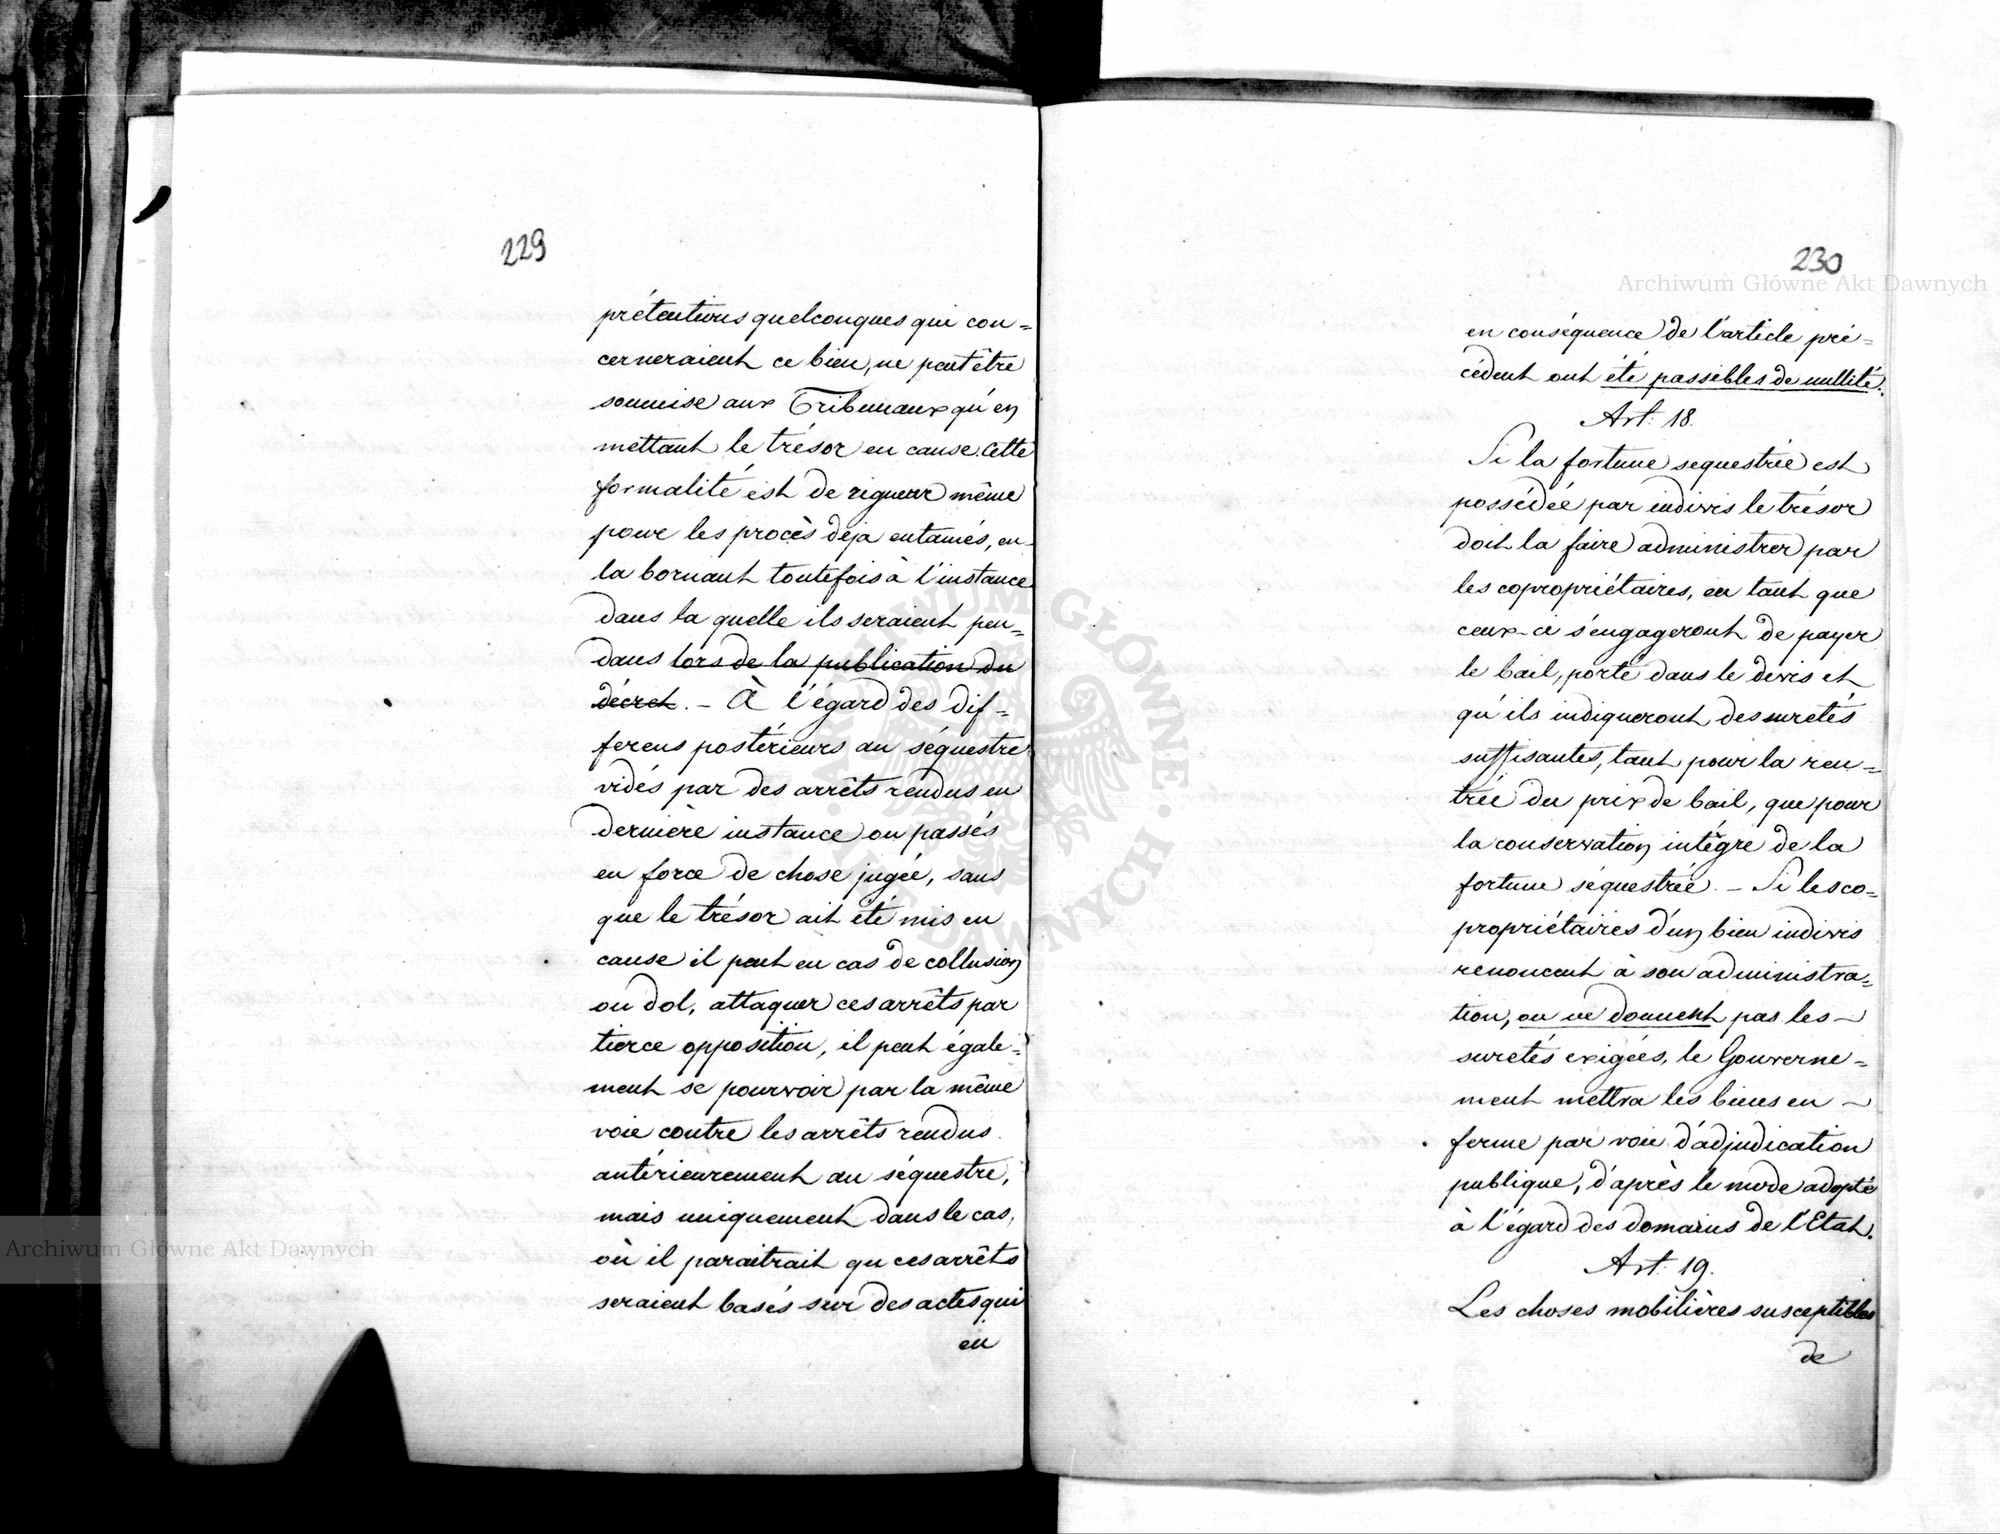 229
prétentions quelconques qui con=
cerneraient ce bien, ne peut être
soumise aux Tribunaux qu'en
mettant le trésor en cause. Cette
formalité est de rigueur même
pour les procès deja entamés, en
la bornant toutefois à l'instance
dans la quelle ils seraient pen=
dans lors de la publication du
décret. - À l'égard des dif=
ferens postérieurs au séquestre
vidés par des arrêts rendus en
dernière instance ou passés
en force de chose jugée, sans
que le trésor ait été mis en
cause il peut en cas de collusion
ou dol, attaquer ces arrêts par
tierce opposition, il peut égale=
ment se pourvoir par la même
voie contre les arrêts rendus
antérieurement au séquestre,
mais uniquement dans le cas,
où il paraitrait que ces arrêts
seraient basés sur des actes qui
en
230
en conséquence de l'article pré=
cédent ont été passibles de nullité.
Art. 18.
Si la fortune sequestrée est
possédée par indivis le trésor
doit la faire administrer par
les copropriétaires, en tant que
ceux-ci s'engageront de payer
le bail, porté dans le devis et
qu'ils indiqueront des suretés
suffisantes, tant pour la ren=
trée du prix de bail, que pour
la conservation intègre de la
fortune séquestrée. - Si les co=
propriétaires d'un bien indivis
renoncent à son administra=
tion, ou ne donnent pas les
suretés exigées, le Gouverne=
ment mettra les biens en
ferme par voie d'adjudication
publique, d'après le mode adopté
à l'égard des domains de l'Etat.
Art. 19.
Les choses mobilières susceptibles
de
Archiwum Główne Akt Dawnych
Archiwum Główne Akt Dawnych
ARCHIWUM GŁÓWNE AKT DAWNYCH